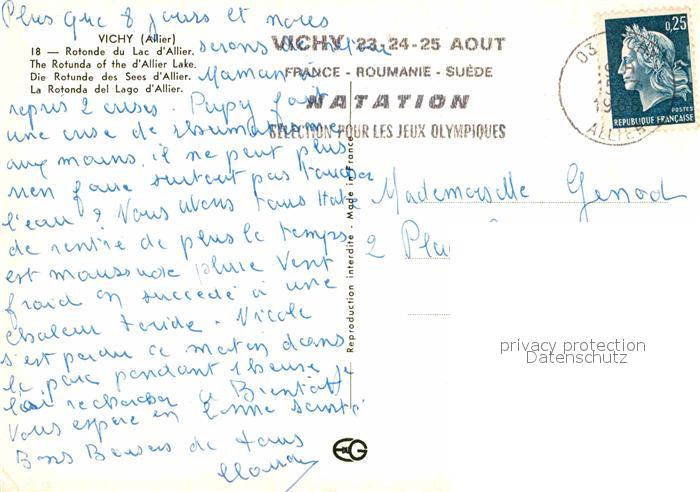 Plus que 8 jours et nous
serons de retour
Maman a
repris 2 crises. Papy fait
une crise de rhumatisme
aux mains. il ne peut plus
rien faire surtout pas toucher
l'eau? Nous avons tous hate
de rentre de plus le temps
est maussade pluie vent
froid on succedé à une
chaleur toride. Nicole
s'est perdu ce matin dans
le parc pendant 1 heure je
l'ai rechercher a Bientôt
Vous espere en bonne santé
Bons Baisers de tous
VICHY (Allier)
18 — Rotonde du Lac d'Allier.
The Rotunda of the d'Allier Lake.
Die Rotunde des Sees d'Allier.
La Rotonda del Lago d'Allier.
VICHY 23-24-25 AOUT
FRANCE - ROUMANIE - SUÈDE
NATATION
SÉLECTION POUR LES JEUX OLYMPIQUES
03
ALLIER
0,25
POSTES
REPUBLIQUE FRANÇAISE
Reproduction interdite - Made in France
Mademoiselle Genod
2
privacy protection
Datenschutz